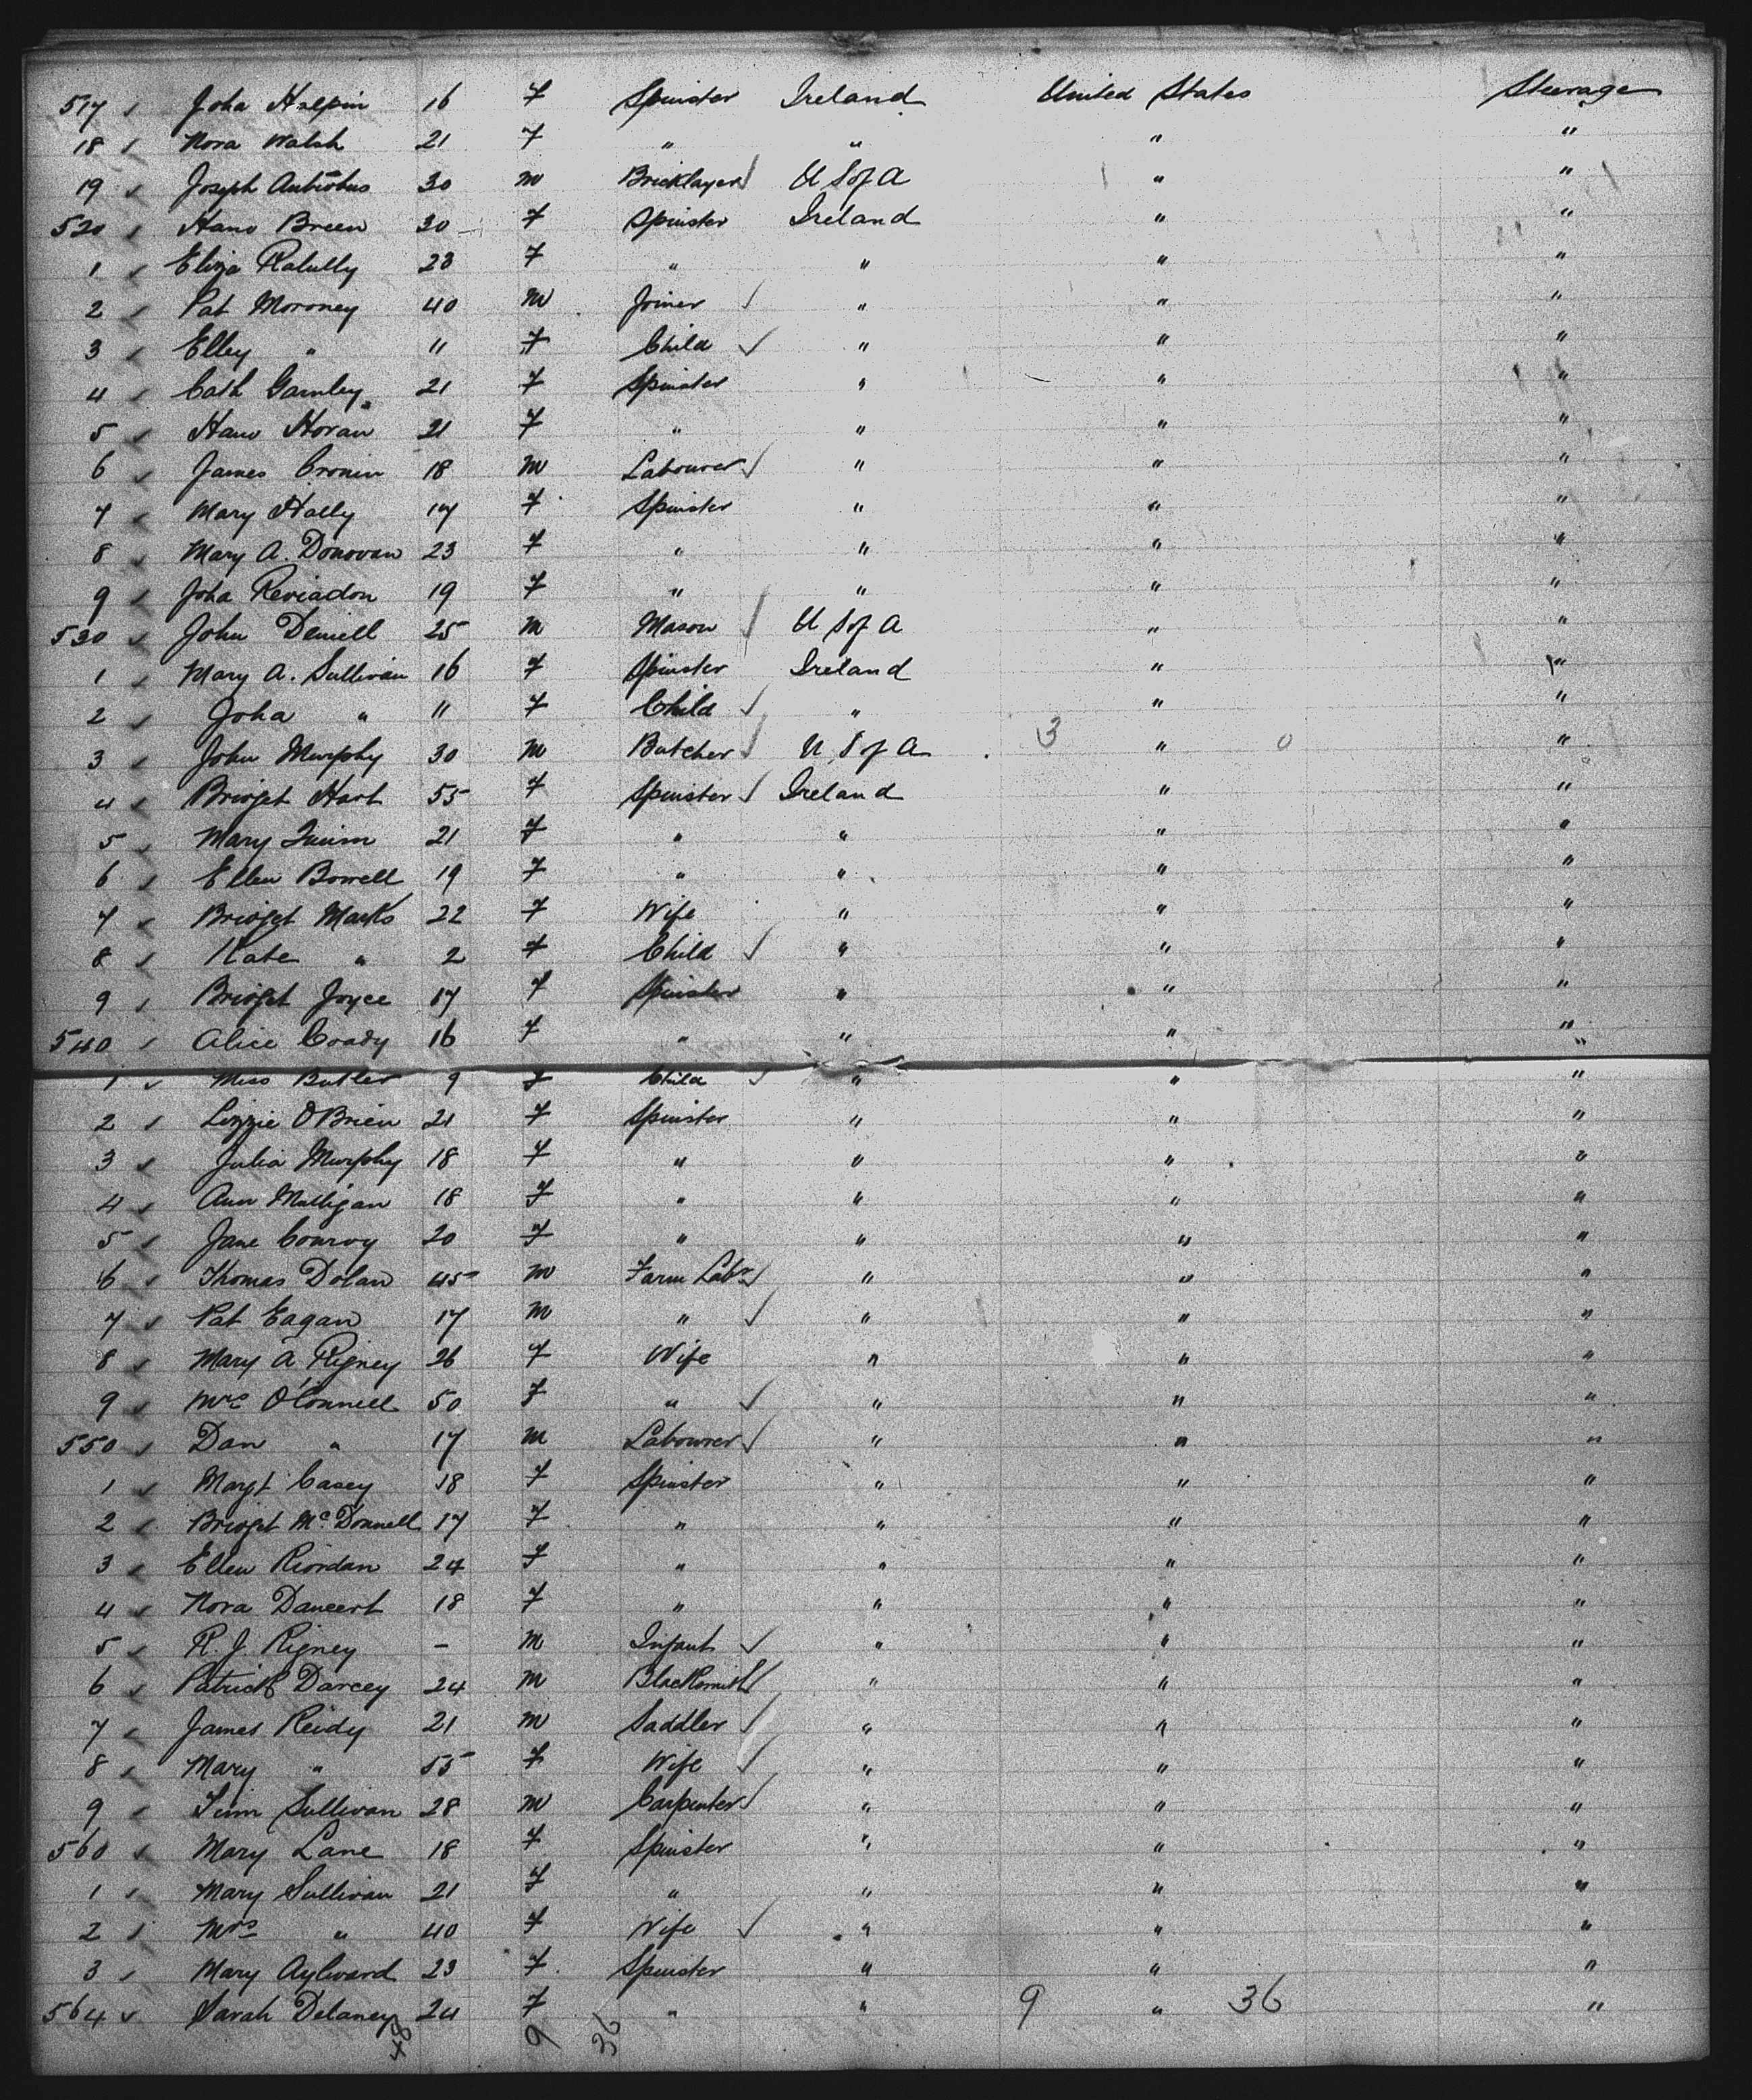 517 ✓ Joha Halpin 16 F Spinster Ireland United States Steerage
18 ✓ Nora Walsh 21 F " " " "
19 ✓ Joseph 30 M Bricklayer ✓ U S of A " "
520 ✓ Hano Breen 30 F Spinster Ireland " "
1 ✓ Eliza 23 F " " " "
2 ✓ Pat Moroney 40 M Joiner ✓ " " "
3 ✓ Elley " 11 F Child ✓ " " "
4 ✓ Cath Gamley 21 F Spinster " " "
5 ✓ Hano Horan 21 F " " " "
6 ✓ James Cronin 18 M Labourer ✓ " " "
7 ✓ Mary Hally 17 F Spinster " " "
8 ✓ Mary A. Donovan 23 F " " " "
9 ✓ Joha Reviadon 19 F " " " "
530 ✓ John 25 M Mason ✓ U S of A " "
1 ✓ Mary A. Sullivan 16 F Spinster Ireland " "
2 ✓ Joha " 11 F Child ✓ " " "
3 ✓ John Murphy 30 M Butcher ✓ U S of A 3 " 0 "
4 ✓ Bridget Hart 55 F Spinster ✓ Ireland " "
5 ✓ Mary Quinn 21 F " " " "
6 ✓ Ellen Borrell 19 F " " " "
7 ✓ Bridget Marks 22 F Wife " " "
8 ✓ Kate " 2 F Child ✓ " " "
9 ✓ Bridget Joyce 17 F Spinster " " "
540 ✓ Alice Coady 16 F " " " "
1 ✓ Miss Butler 9 F Child ✓ " " "
2 ✓ Lizzie O'Brien 21 F Spinster " " "
3 ✓ Julia Murphy 18 F " " " "
4 ✓ Ann Mulligan 18 F " " " "
5 ✓ Jane Conroy 20 F " " " "
6 ✓ Thomas Dolan 45 M Farm Labr ✓ " " "
7 ✓ Pat Eagan 17 M " ✓ " " "
8 ✓ Mary A Rigney 26 F Wife " " "
9 ✓ Mrs O'Connell 50 F " ✓ " " "
550 ✓ Dan " 17 M Labourer ✓ " " "
1 ✓ Margt Casey 18 F Spinster " " "
2 ✓ Bridget McDonnell 17 F " " " "
3 ✓ Ellen Riordan 24 F " " " "
4 ✓ Nora Dancert 18 F " " " "
5 ✓ R. J. Rigney – M Infant ✓ " " "
6 ✓ Patrick Darcey 24 M Blacksmith ✓ " " "
7 ✓ James Reidy 21 M Saddler ✓ " " "
8 ✓ Mary " 55 F Wife ✓ " " "
9 ✓ Tim Sullivan 28 M Carpenter ✓ " " "
560 ✓ Mary Lane 18 F Spinster " " "
1 ✓ Mary Sullivan 21 F " " " "
2 ✓ Mrs " 40 F Wife ✓ " " "
3 ✓ Mary Aylward 23 F Spinster " " "
564 ✓ Sarah Delaney 24 F " " 9 " 36 "
48 9 36